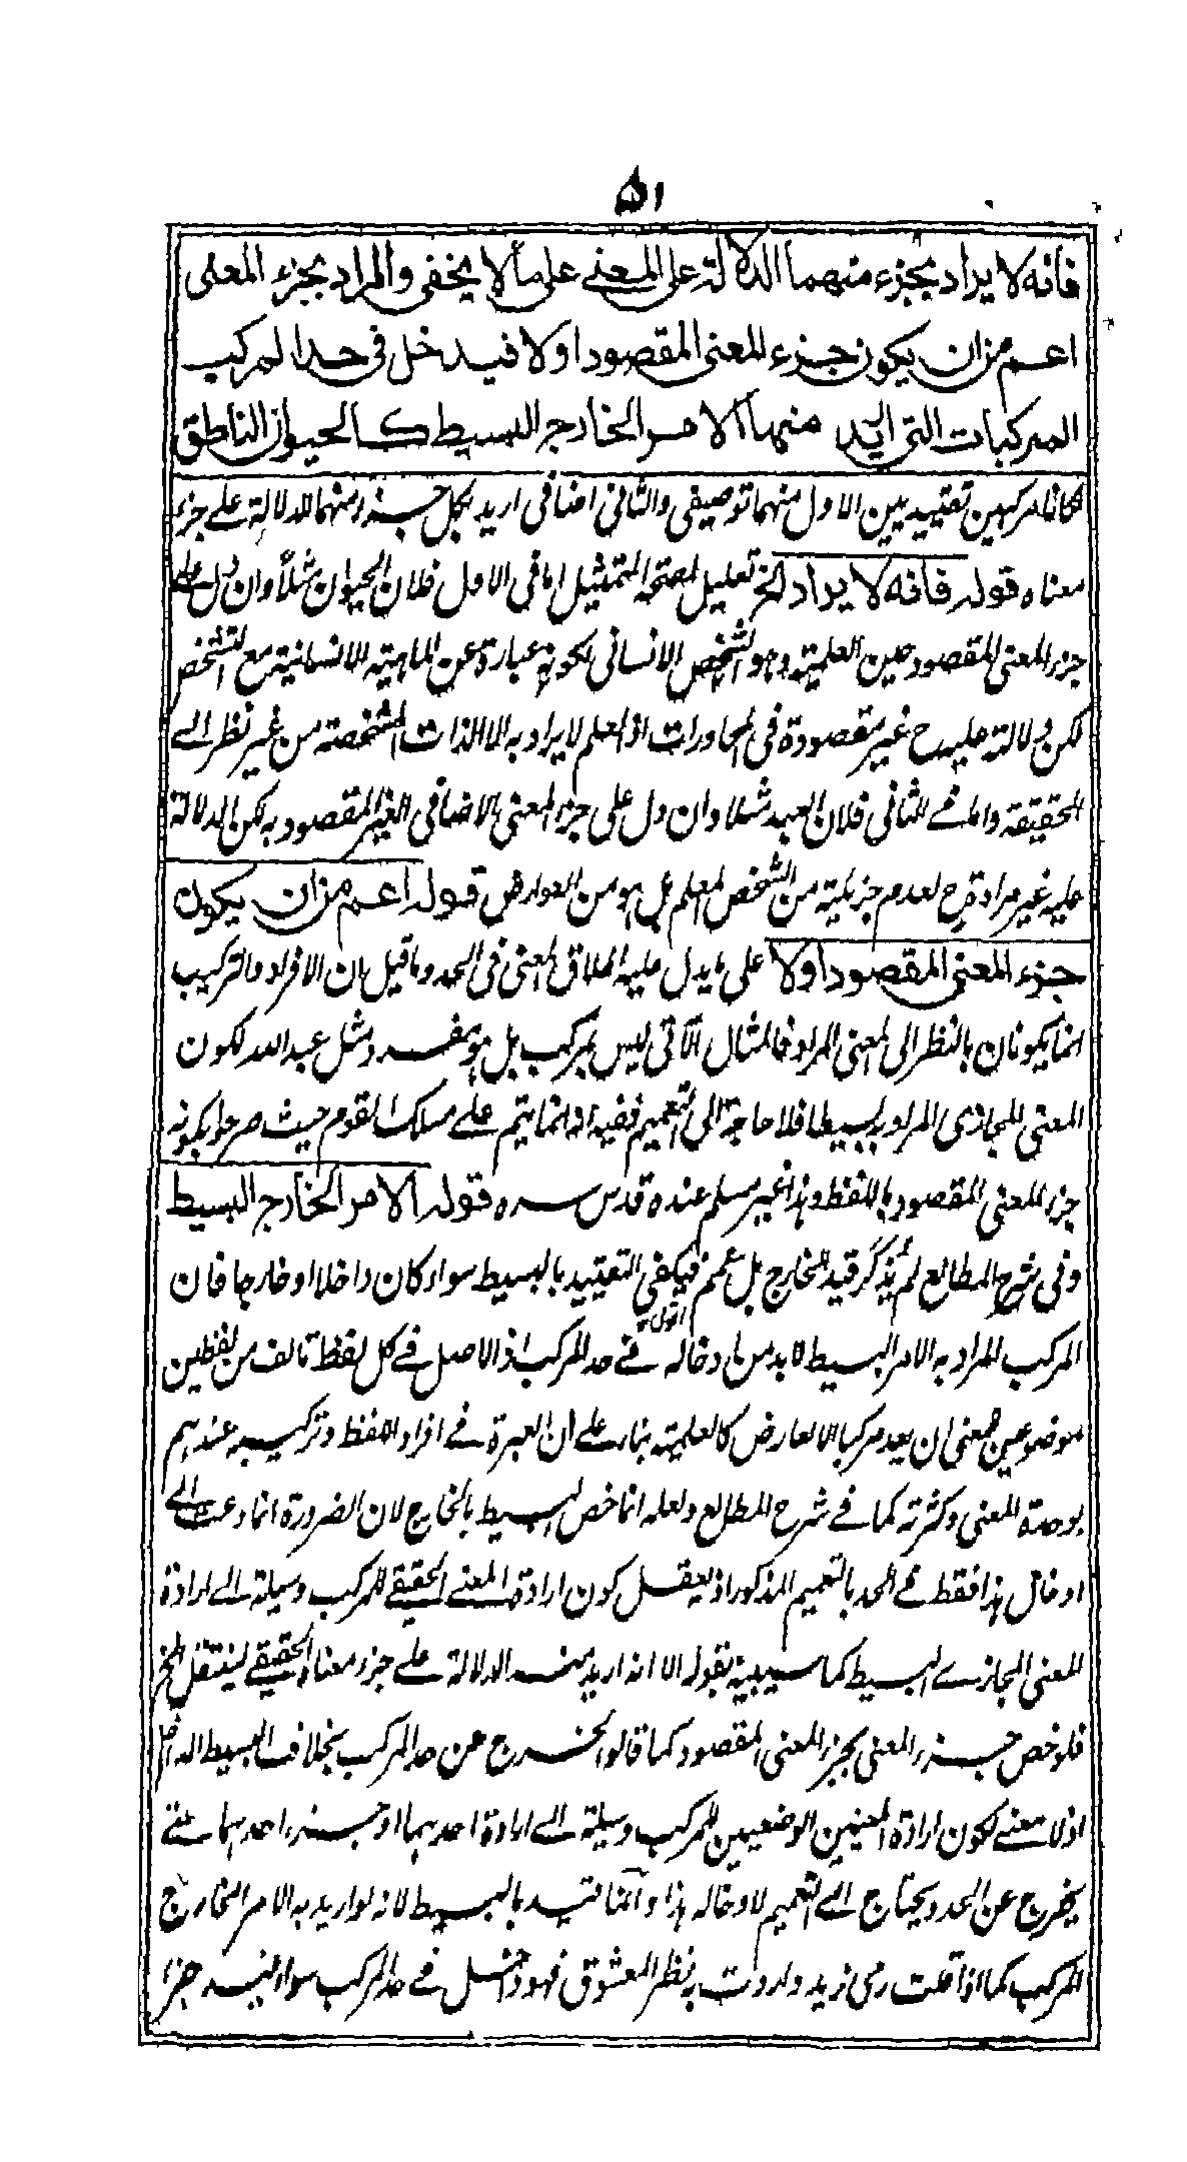 ۵۱
فانه لا يراد بجزء منهما الدلالة على المعنى على ما لا يخفى والمراد بجزء المعنى
اعم من ان يكون جزء المعنى المقصود او لا فيدخل فى حد المركب
المركبات التى اريد منها الامر الخارج البسيط كالحيوان الناطق
كانا مركبين تقييديين الاول منهما توصيفى والثانى اضافى اريد بكل جزء منهما الدلالة على جزء
معناه قوله فانه لا يراد الخ تعليل لصحة التمثيل اما فى الاول فلان الحيوان مثلاً وان دل على
جزء المعنى المقصود حين العلمية وهو الشخص الانسانى لكونه عبارة عن الماهية الانسانية مع التشخص
لكن دلالته عليه ح غير مقصودة فى المحاورات اذ العلم لا يراد به الا الذات المشخصة من غير نظر الى
الحقيقة واما فى الثانى فلان العبد مثلا وان دل على جزء المعنى الاضافى الغير المقصود به لكن الدلالة
عليه غير مرادة ح لعدم جزئيته من الشخص المعلم بل هو من العوارض قوله اعم من ان يكون
جزء المعنى المقصود او لا على ما يدل عليه اطلاق المعنى فى الحد وما قيل بان الافراد والتركيب
انما يكونان بالنظر الى المعنى المراد فالمثال الآتى ليس بمركب بل هو مفرد مثل عبد الله لكون
المعنى المجازى المراد بسيطا فلا حاجة الى التعميم ففيه انه انما يتم على مسلك القوم حيث صرحوا بكونه
جزء المعنى المقصود باللفظ وهذا غير مسلم عنده قدس سره قوله الامر الخارج البسيط
وفى شرح المطالع لم يذكر قيد الخارج بل عمم فيكفى التقييد بالبسيط سواء كان داخلا او خارجا فان
المركب المراد به الامر البسيط لا بد من ادخاله فى حد المركب اذ الاصل فى كل لفظ تالف من لفظين
موضوعين لمعنى ان يعد مركبا الا لعارض كالعلمية بناء على ان العبرة فى افراد اللفظ وتركيبه عندهم
بوحدة المعنى وكثرته كما فى شرح المطالع ولعله انما خص البسيط بالخارج لان الضرورة انما دعت الى
ادخال هذا فقط فى الحد بالتعميم المذكور اذ يعقل كون ارادة المعنى الحقيقى للمركب وسيلة الى ارادة
المعنى المجازى البسيط كما سيبينه بقوله الا انه اريد منه الدلالة على جزء معناه الحقيقى لينتقل الخ
فلو خص جزء المعنى بجزء المعنى المقصود كما قالوا لخرج عن حد المركب بخلاف البسيط الداخل
اذ لا معنى لكون ارادة المعنيين الوضعيين للمركب وسيلة الى ارادة احدهما او جزء احدهما حتى
يخرج عن الحد ويحتاج الى التعميم لادخاله هذا وانما قيد بالبسيط لانه لو اريد به الامر الخارج
المركب كما اذا قلت رمى زيد واردت به نظر المعشوق فهو داخل فى حد المركب سواء قيد جزء